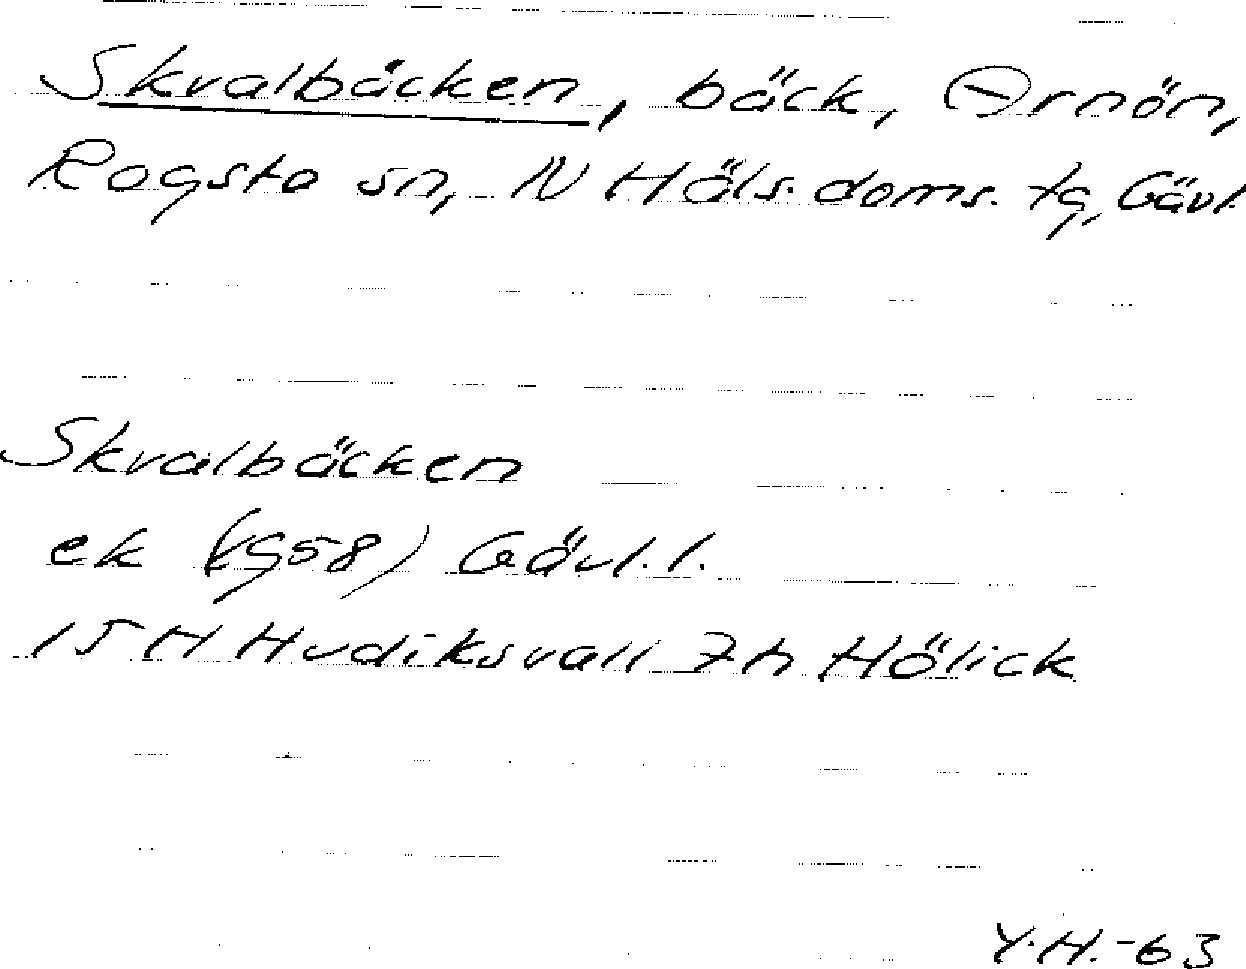 Skvalbäcken, bäck, Arnön,
Rogsta sn, N Häls. doms. tg, Gävl.
Skvalbäcken
ek (1958) Gävl. l.
15 H Hudiksvall 7 h Hölick
Y.H.-63